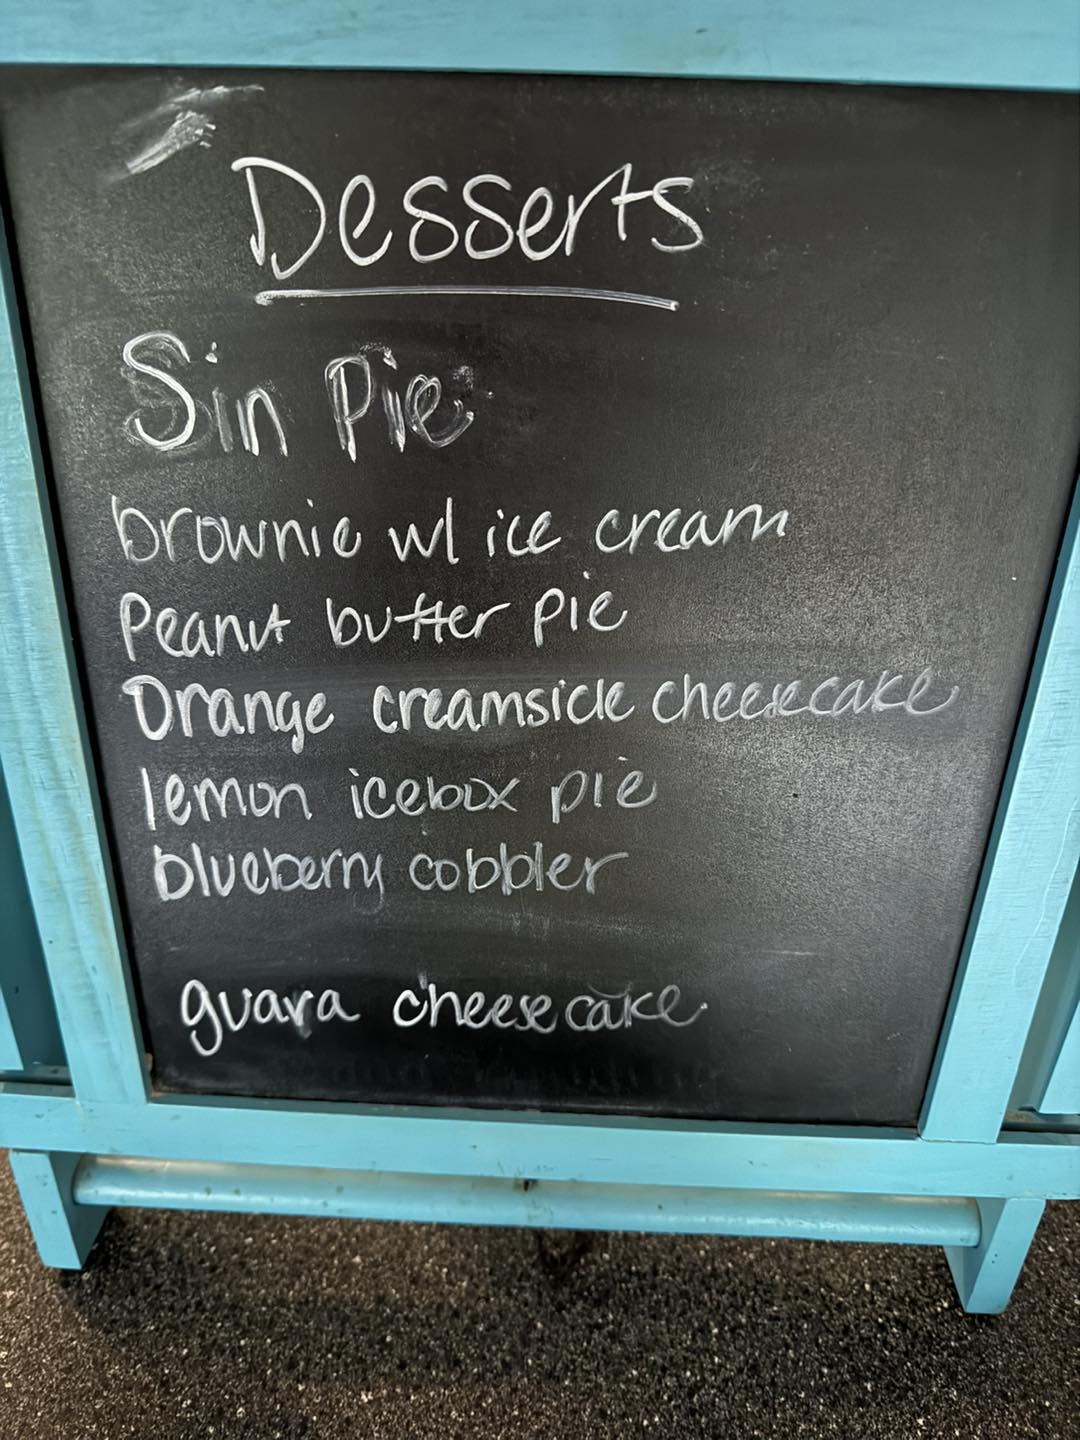 Desserts
Sin Pie
brownie w/ ice cream
Peanut butter pie
Orange creamsicle cheesecake
lemon icebox pie
blueberry cobbler
guava cheesecake